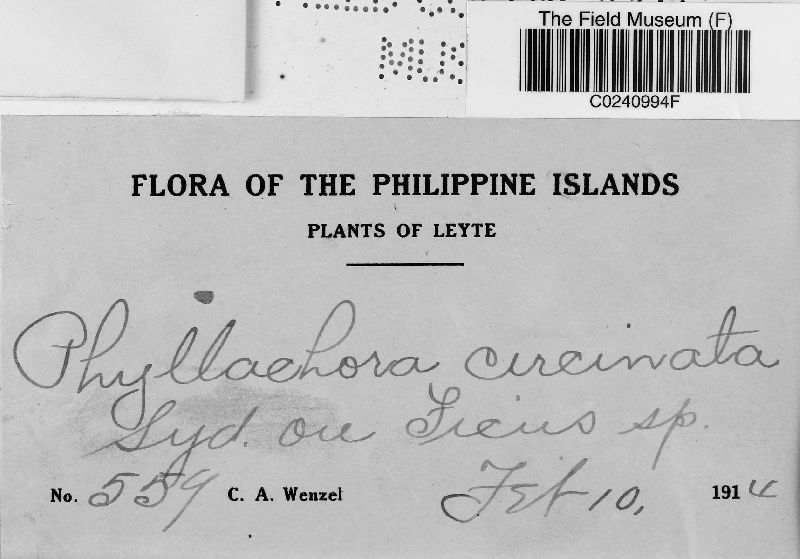 The Field Museum (F)
C0240994F
MUK
FLORA OF THE PHILIPPINE ISLANDS
PLANTS OF LEYTE
Phyllachora circinata
Syd. on Ficus sp.
No. 559 C. A. Wenzel Feb 10, 1914